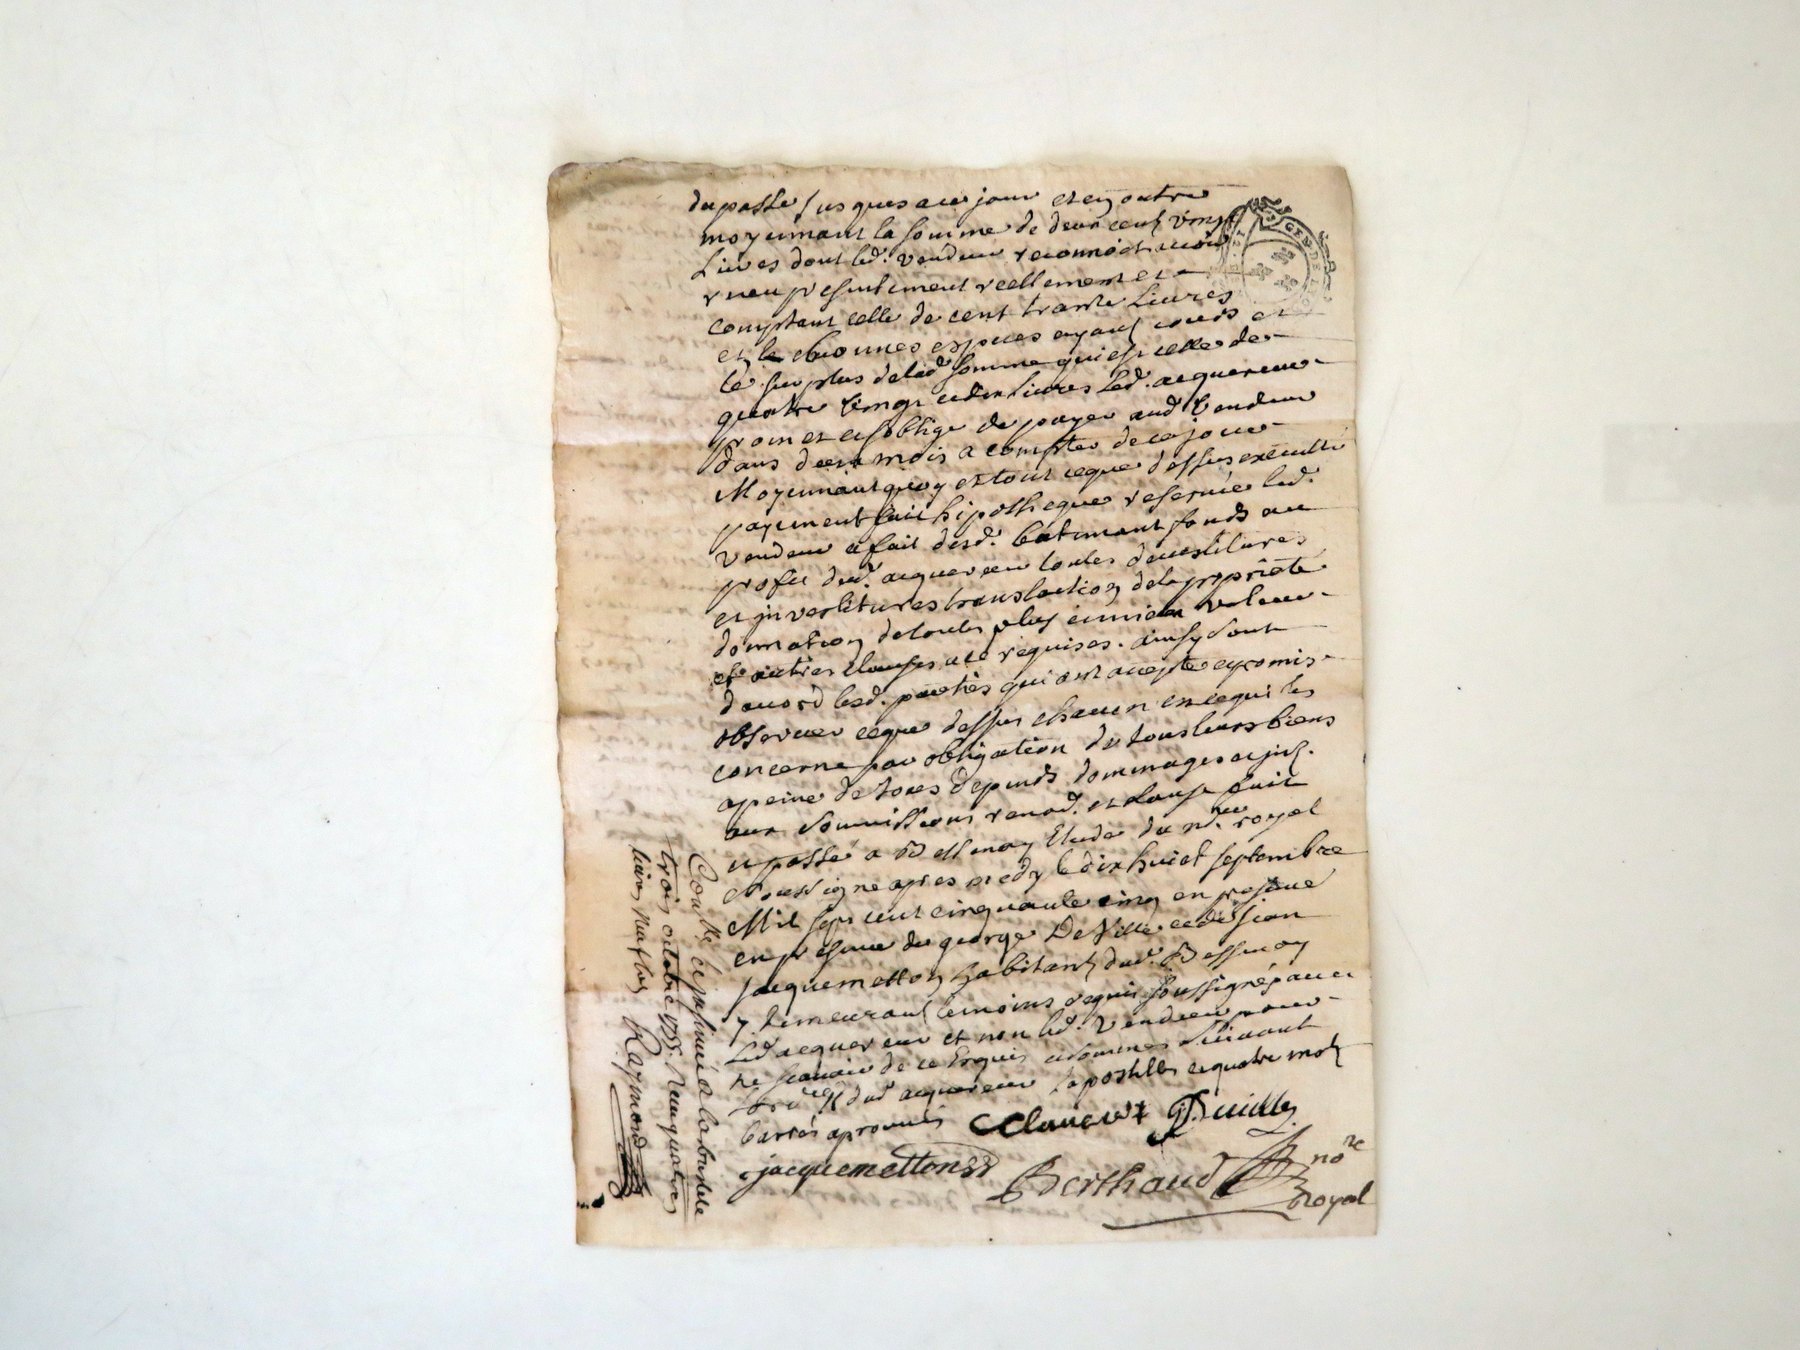 du passé jusques a ce jour et en outre
moyennant la somme de deux cent vingt
Livres dont led. vendeur reconnoit avoir
receu presentement reellement et
comptant celle de cent trante Livres
en bonnes especes ayant cours et
le surplus de lad. somme qui est celle de
quatre vingt et dix livres led. acquereur
promet et soblige de payer aud. vendeur
dans deux mois a compter de ce jour
Moyennant quoy et tout ce que dessus executé
payement fait hipotheque reservée led.
vendeur a fait desd. batimant fonds au
profit dud. acquereur toutes devestitures
et investitures translation de la proprieté
donnation de toutes plus
et autres clauses a ce requises. ainsy sont
d'acord lesd. parties qui ont accepté et promis
observer ce que dessus chacun en ce qui les
concerne par obligation de tous leurs biens
a peine de tous depends dommages
aux soumissions renod. et clause fait
et passé a Bessenay Etude du no.re royal
soussigné apres midy le dix huict septembre
Mil sept cent cinquante cinq
en presence de george De Ville et de Jean
jacquemetton habitant dud. Bessenay
y demeurant temoins requis soussignés avec
led. acquereur et non led. vendeur pour
ne scavoir de ce Enquis et sommés suivant
dud. acquereur et quatre mots
barrés aprouvés Claneut G. Deville
jacquemetton
Berthaud no.re
royal
Con.lé et insinué a la bresle
trois octobre 1755. Receu quatre
livres neuf sols Raymond
GEN DE LYO